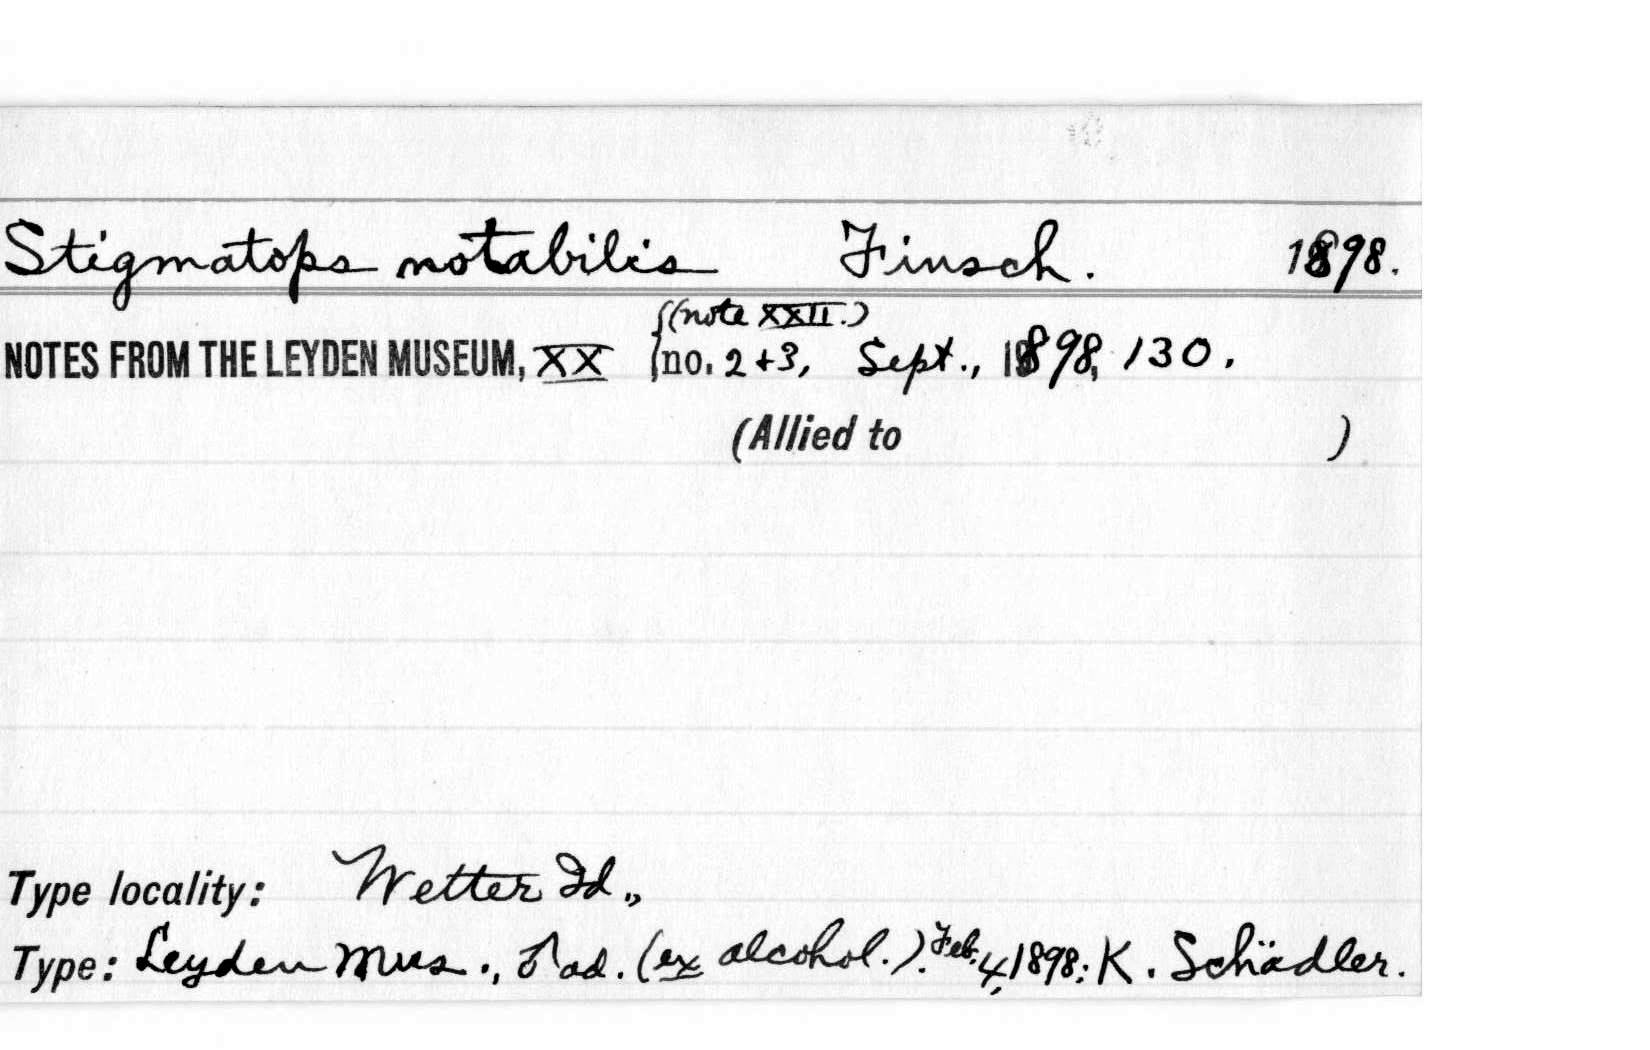 Stigmatops notabilis Finsch. 1898.
(note XXII.)
NOTES FROM THE LEYDEN MUSEUM, XX no. 2+3, Sept., 1898, 130.
(Allied to )
Type locality: Wetter Id.,
Type: Leyden Mus., ♂ ad. (ex alcohol.). Feb. 4, 1898; K. Schädler.